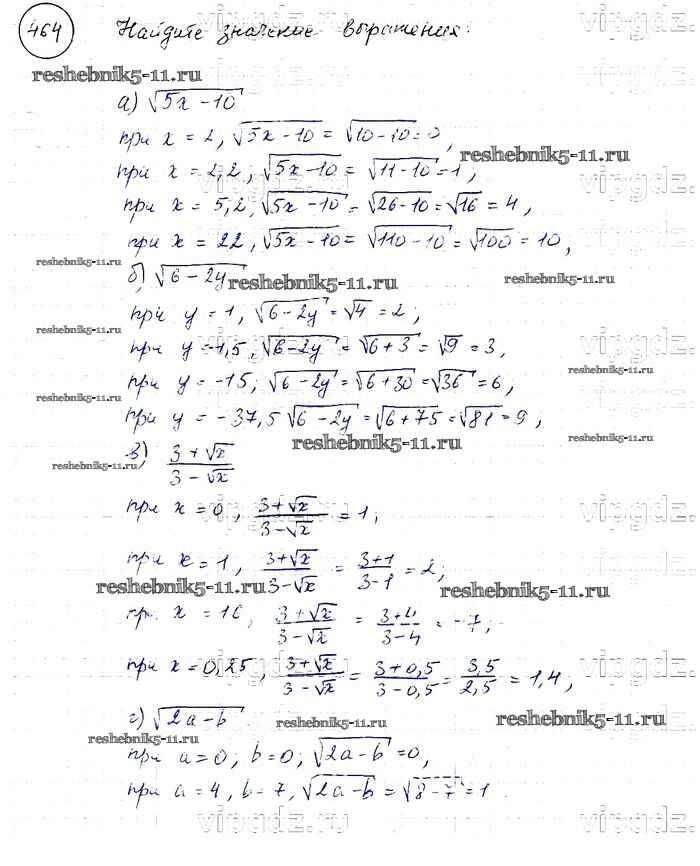 464 Найдите значение выражения:
reshebnik5-11.ru
а) √(5x − 10)
при x = 2, √(5x − 10) = √(10 − 10) = 0,
reshebnik5-11.ru
при x = 2,2, √(5x − 10) = √(11 − 10) = 1,
vipgdz.ru
при x = 5,2, √(5x − 10) = √(26 − 10) = √16 = 4,
при x = 22, √(5x − 10) = √(110 − 10) = √100 = 10,
reshebnik5-11.ru
б) √(6 − 2y) reshebnik5-11.ru reshebnik5-11.ru
при y = 1, √(6 − 2y) = √4 = 2;
reshebnik5-11.ru
при y = −1,5, √(6 − 2y) = √(6 + 3) = √9 = 3,
при y = −15, √(6 − 2y) = √(6 + 30) = √36 = 6,
reshebnik5-11.ru
при y = −37,5 √(6 − 2y) = √(6 + 75) = √81 = 9,
reshebnik5-11.ru
в) (3 + √x)/(3 − √x)
reshebnik5-11.ru
при x = 0, (3 + √x)/(3 − √x) = 1;
vipgdz.ru
при x = 1, (3 + √x)/(3 − √x) = (3 + 1)/(3 − 1) = 2;
reshebnik5-11.ru reshebnik5-11.ru
при x = 16, (3 + √x)/(3 − √x) = (3 + 4)/(3 − 4) = −7,
при x = 0,25, (3 + √x)/(3 − √x) = (3 + 0,5)/(3 − 0,5) = 3,5/2,5 = 1,4,
г) √(2a − b) reshebnik5-11.ru reshebnik5-11.ru
reshebnik5-11.ru
при a = 0, b = 0, √(2a − b) = 0,
при a = 4, b = 7, √(2a − b) = √(8 − 7) = 1
vipgdz.ru vipgdz.ru